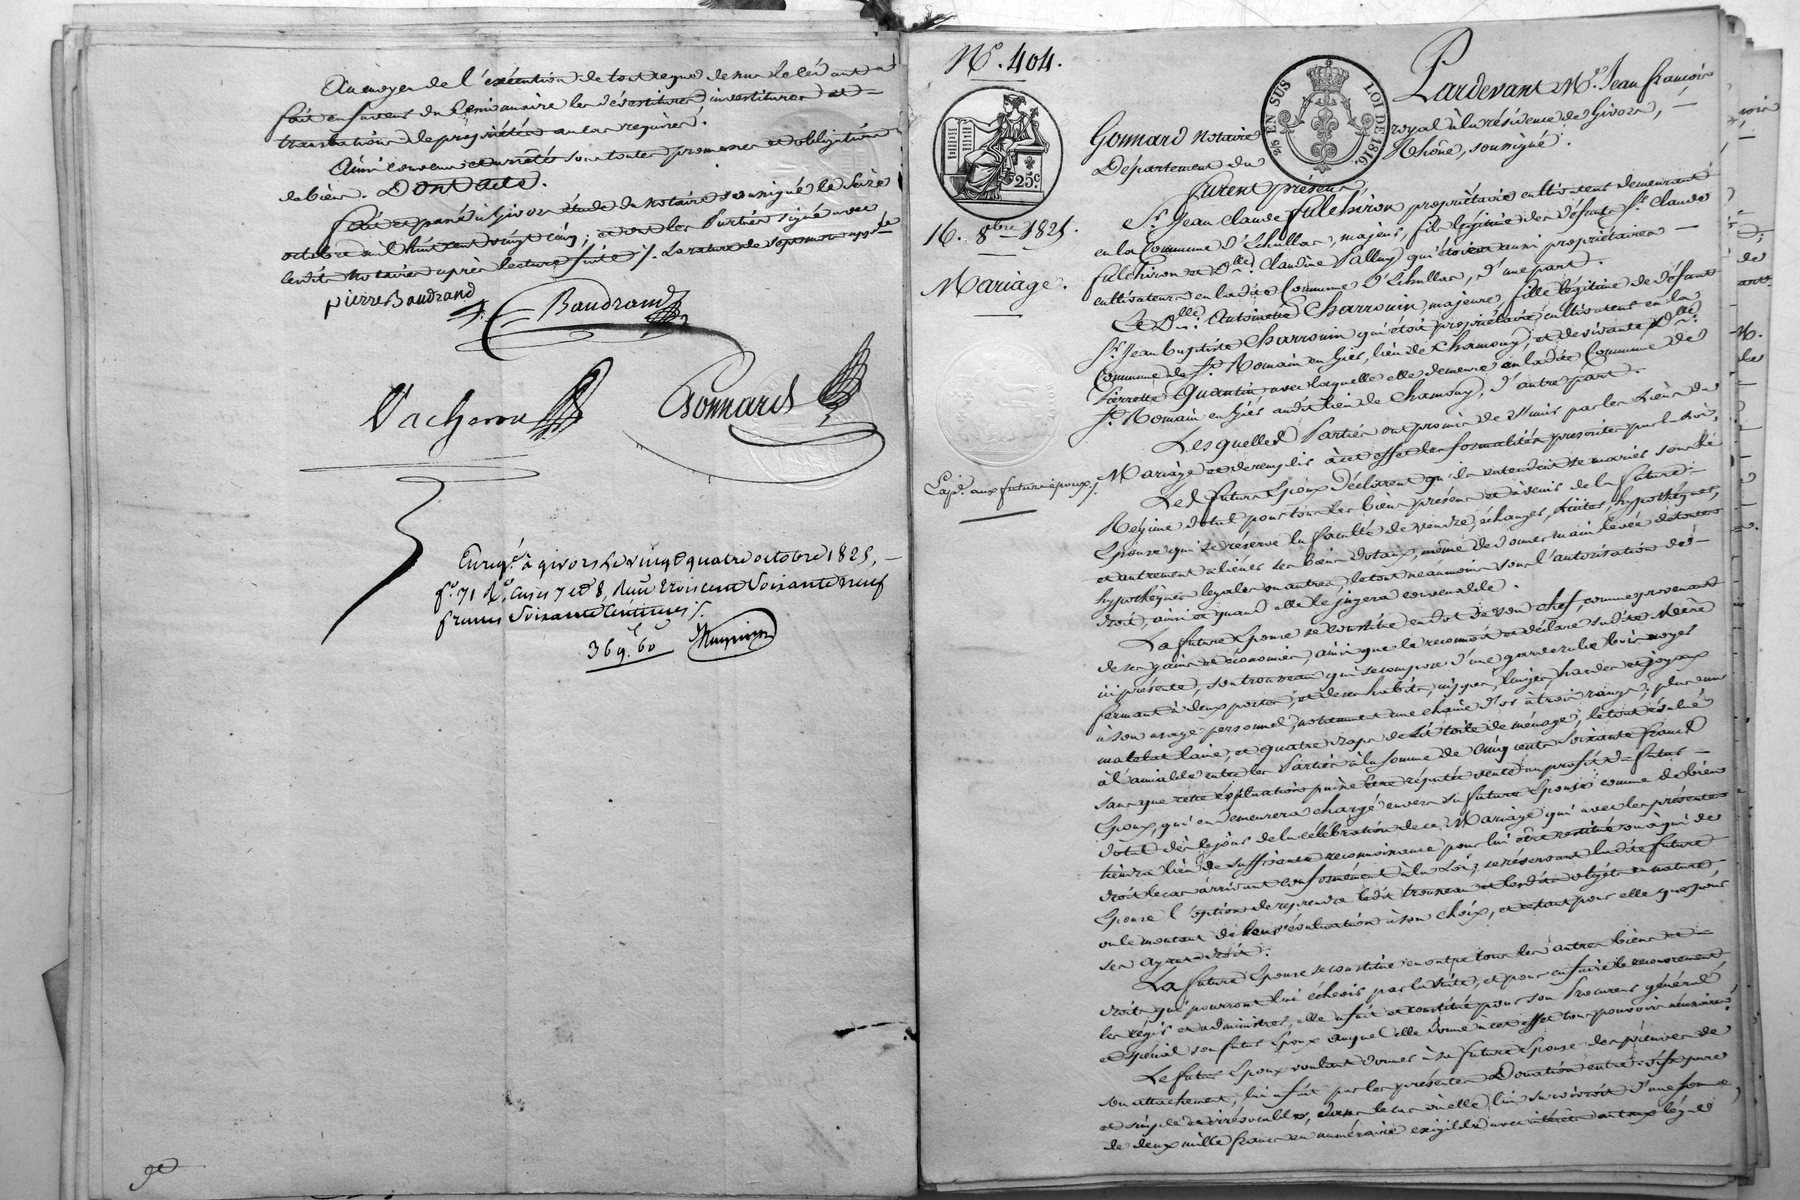 Au moyen de l'exécution de tout
fait en faveur du
translations de propriétés au cas requis.
Ainsi convenu et arrêté sous toutes promesses et obligations
de biens. Dont acte.
Fait et passé à Givors étude du notaire soussigné le seize
octobre an mil huit cent vingt cinq; et ont les Parties signé avec
ledit notaire après lecture faite /.
pierre Baudrand
Baudrand
Vacheron
Gonnard
Enreg.é à givors le vingt quatre octobre 1825,
f.o 71 R.o, Cases 7 et 8, Reçu trois cent soixante neuf
francs soixante centimes /.
369. 60
N.o 404.
25 EN SUS LOI DE 1816.
25c
16. 8bre 1825.
Mariage.
Exp.on aux futurs époux /.
Pardevant M.e Jean françois
Gonnard notaire royal à la résidence de Givors,
Département du Rhône, soussigné.
furent présens
S.r Jean Claude fulchiron propriétaire cultivateur demeurant
en la Commune d'Echallas, majeur, fils légitime des défunts S.r Claude
fulchiron et D.lle Claudine Valluy qui étoient aussi propriétaires
cultivateurs en ladite Commune d'Echallas, d'une part.
Et D.lle Antoinette Charrouin, majeure, fille légitime de défunt
S.r Jean baptiste Charrouin qui étoit propriétaire cultivateur en la
Commune de S.t Romain en Giès, lieu de Chamony, et de vivante D.lle
Pierrette Quantin, avec laquelle elle demeure en ladite Commune de
S.t Romain en Giès audit lieu de Chamony, d'autre part.
Lesquelles Parties ont promis de s'unir par les Liens du
Mariage et de remplir à cet effet les formalités prescrites par la Loi,
Les futurs Epoux déclarent qu'ils entendent se marier sous le
Régime dotal pour tous les biens présens et à venir de la future
Epouse qui se réserve la faculté de vendre, échanger, traiter, hypothéquer,
et autrement aliéner ses biens dotaux, même de donner main levée de toutes
hypothèques légales ou autres, le tout néanmoins sous l'autorisation de
droit, ainsi et quand elle le jugera convenable.
La future Epouse se constitue en dot de son chef, comme provenant
de ses gains et économies, ainsi que le reconnoit et déclare sadite Mère
ici présente, son trousseau qui se compose d'une garderobe bois noyer
fermant à deux portes, et de ses habits, nippes, linges, hardes et joyaux
à son usage personnel, notamment une chaine d'or à trois rangs; plus un
matelat laine, et quatre draps de lit toile de ménage; le tout évalué
à l'amiable entre les Parties à la somme de cinq cents soixante francs
sans que cette évaluation puisse être réputée vente au profit du futur
Epoux, qui en demeurera chargé envers sa future Epouse comme de biens
dotal dès le jour de la célébration de ce Mariage qui avec les présentes
tiendra lieu de suffisante reconnoissance pour lui être restitué ou à qui de
droit le cas arrivant conformément à la Loi; se réservant ladite future
Epouse l'option de reprendre ledit trousseau et lesdits objets en nature
ou le montant de leur évaluation à son choix, et ce tant pour elle que pour
ses Ayant-droit.
La future Epouse se constitue en outre tous les autres biens et
droits qui pourront lui échoir par la suite, et pour en faire le recouvrement
les régir et administrer, elle a fait et constitué pour son Procureur général
et spécial son futur Epoux auquel elle donne à cet effet tous pouvoirs nécessaires.
Le futur Epoux voulant donner à sa future Epouse des preuves de
son attachement, lui fait par les présentes Donation entre vifs pure
et simple et irrévocable, dans le cas où elle lui survivroit d'une somme
de deux mille francs en numéraire exigible avec intérêts au taux légal